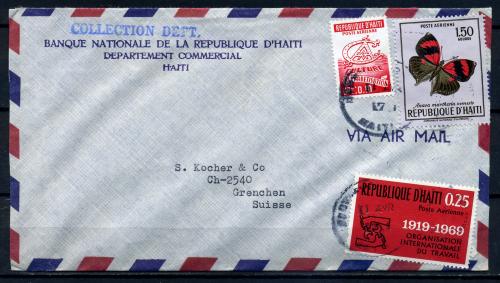 COLLECTION DEPT.
BANQUE NATIONALE DE LA REPUBLIQUE D'HAITI
DEPARTEMENT COMMERCIAL
HAITI
REPUBLIQUE D'HAITI
POSTE AERIENNE
CULTURE
ALPHABETISATION
0.10
POSTE AERIENNE
1.50
GOURDES
REPUBLIQUE D'HAITI
VIA AIR MAIL
S. Kocher & Co
Ch-2540
Grenchen
Suisse
REPUBLIQUE D'HAITI 0.25
Poste Aerienne
1919-1969
ORGANISATION
INTERNATIONALE
DU TRAVAIL